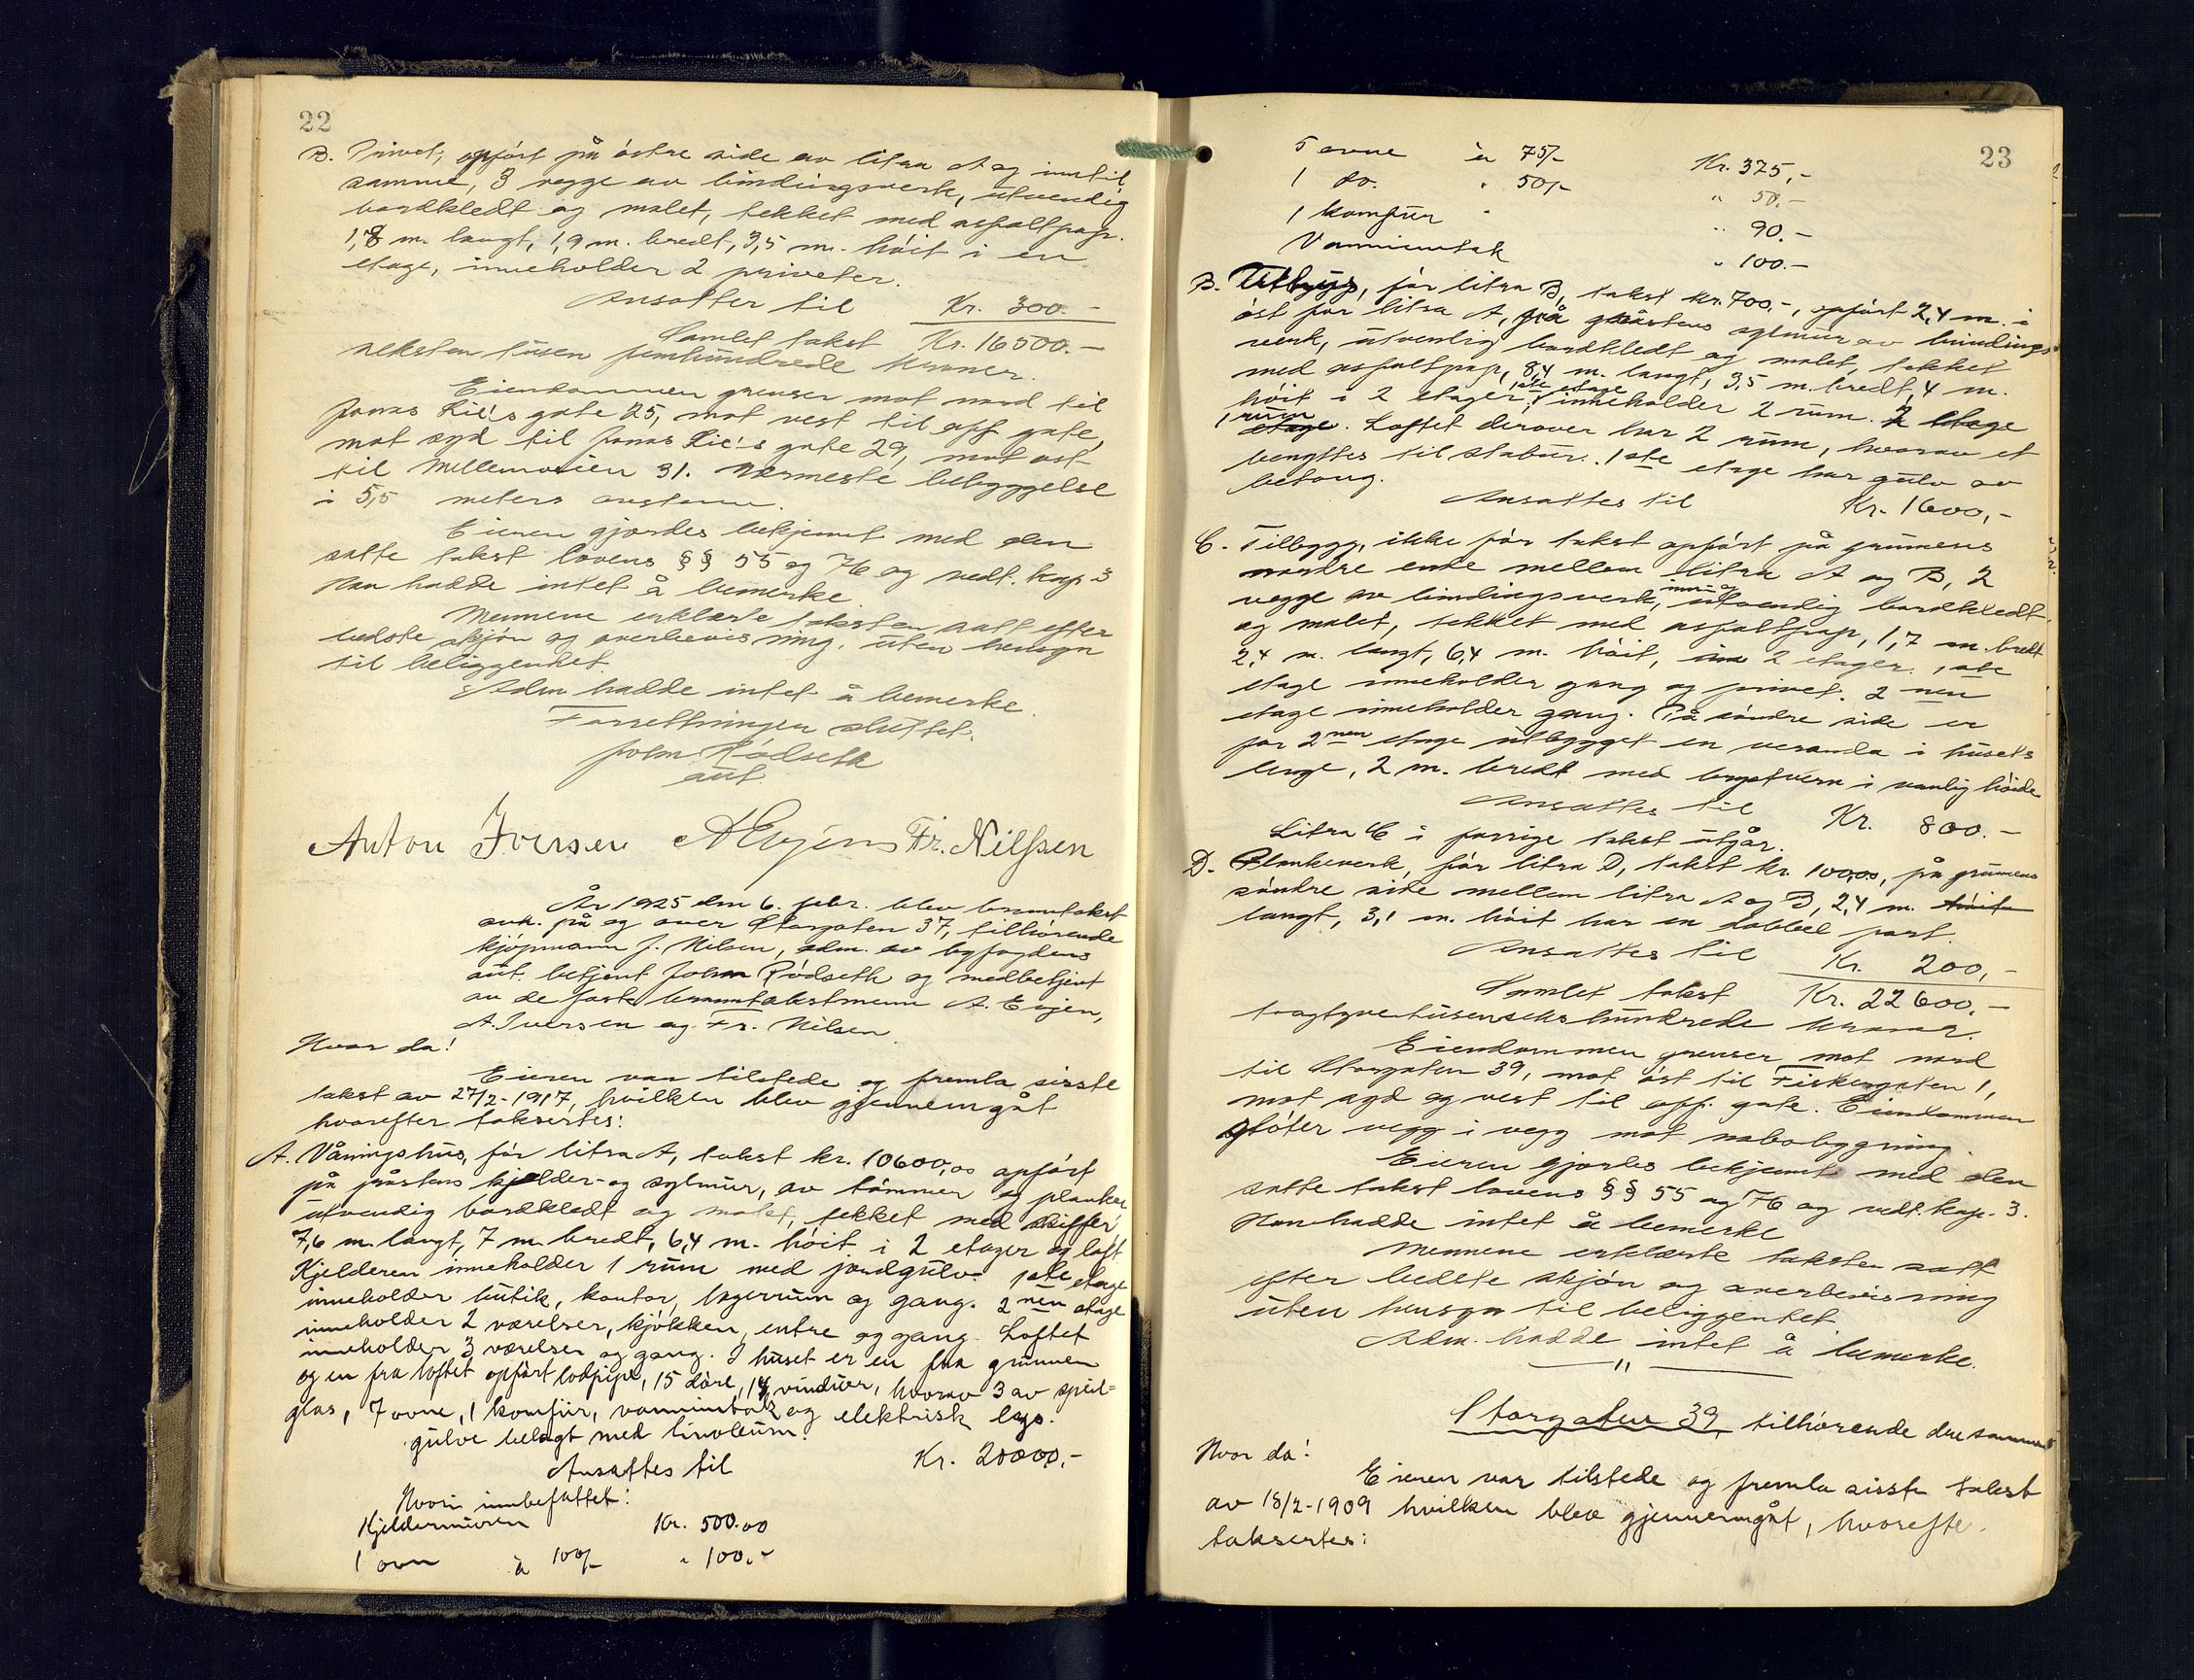 22
B. Privet, opført på östre side av litra A og inntil
samme, 3 vegge av bindingsverk, utvendig
bordkledt og malet, tekket med asfaltpap.
1,8 m. langt, 1,9 m. bredt, 3,5 m. höit i en
etage, inneholder 2 priveter.
Ansatter til Kr. 300.-
Samlet takst Kr. 16500.-
seksten tusen femhundrede kroner.
Eiendommen grenser mot nord til
Jonas Lie's gate 25, mot vest til off. gate,
mot syd til Jonas Lie's gate 29, mot øst
til Mellemveien 31. Nærmeste bebyggelse
i 5,5 meters avstann.
Eieren gjordes bekjennt med den
satte takst lovens §§ 55 og 76 og vedt. kap 3
Han hadde intet å bemerke.
Mennene erklærte taksten satt efter
bedste skjön og overbevisning, uten hensyn
til beliggendet.
Adm hadde intet å bemerke.
Forretningen sluttet.
John Rødseth
aut.
Anton Iversen A Evjen Fr. Nilssen
År 1925 den 6. febr. blev branntakst
avh. på og over Storgaten 37, tilhörende
kjöpmann J. Nilsen, adm. av byfogdens
aut. betjent John Rödseth og medbetjent
av de faste branntakstmenn A. Evjen,
A. Iversen og Fr. Nilsen.
Hvor da!
Eieren var tilstede og fremla sisste
takst av 27/2-1917, hvilken blev gjennemgåt
hvorefter taksertes:
A. Våningshus, før litra A, takst kr. 10600,00 opfört
på gråstens kjelder- og sylmur, av tömmer og planker
utvendig bordkledt og malet, tekket med skiffer
7,6 m. langt, 7 m. bredt, 6,4 m. höit i 2 etager og loft
Kjelderen inneholder 1 rum med jordgulv. 1ste etage
inneholder butik, kontor, lagerrum og gang. 2nen etage
inneholder 2 værelser, kjökken, entre og gang. Loftet
inneholder 3 værelser og gang. I huset er en fra grunnen
og en fra loftet opfört lodpipe, 15 döre, 14 vinduer, hvorav 3 av speil-
glas, 7 ovne, 1 komfür, vanninntak og elektrisk lys.
gulve belagt med linoleum.
Ansattes til Kr. 20000,-
Hvori innbefattet:
Kjeldermuren Kr. 500.00
1 ovn à 100/- " 100.-
23
5 ovne à 75/- Kr. 375,-
1 do. " 50/- " 50.-
1 komfür " " 90.-
Vanninntak " 100.-
B. Utbygg, før litra B, takst kr. 700,-, opfört 2,4 m. i
öst for litra A, på gråstens sylmur av bindings
verk, utvendig bordkledt og malet, tekket
med asfaltpap, 8,4 m. langt, 3,5 m. bredt, 4 m.
höit i 2 etager, 1ste etage inneholder 2 rum. 2 etage
1 rum etage. Loftet derover har 2 rum, hvorav et
benyttes til stabur. 1ste etage har gulv av
betong.
Ansattes til Kr. 1600,-
C. Tilbygg, ikke för takst opfört på grunnens
nordre ende mellem litra A og B, 2
vegge av bindingsverk, inn- og utvendig bordkledt
og malet, tekket med asfaltpap, 1,7 m. bredt
2,4 m. langt, 6,4 m. höit, i 2 etager. 1ste
etage inneholder gang og privet. 2nen
etage inneholder gang. På söndre side er
for 2nen etage utbygget en veranda i husets
lengde, 2 m. bredt med brystvern i vanlig höide
Ansattes til Kr. 800.-
Litra C i forrige takst utgår.
D. Plankeverk, før litra D, takst kr. 100,00, på grunnens
söndre side mellem litra A og B, 2,4 m. höit
langt, 3,1 m. höit har en dobbel port.
Ansattes til Kr. 200,-
Samlet takst Kr. 22600,-
toogtyvetusensekshundrede kroner.
Eiendommen grenser mot nord
til Storgaten 39, mot öst til Fiskergaten 1,
mot syd og vest til off. gate. Eiendommen
stöter vegg i vegg mot nabobygning.
Eieren gjordes bekjennt med den
satte takst lovens §§ 55 og 76 og vedt. kap. 3.
Han hadde intet å bemerke
Mennene erklærte taksten satt
efter bedste skjön og overbevisning
uten hensyn til beliggentet
Adm. hadde intet å bemerke.
"
Storgaten 39, tilhörende den samme
Hvor da!
Eieren var tilstede og fremla sisste takst
av 18/2-1909 hvilken blev gjennemgåt, hvorefter
taksertes: